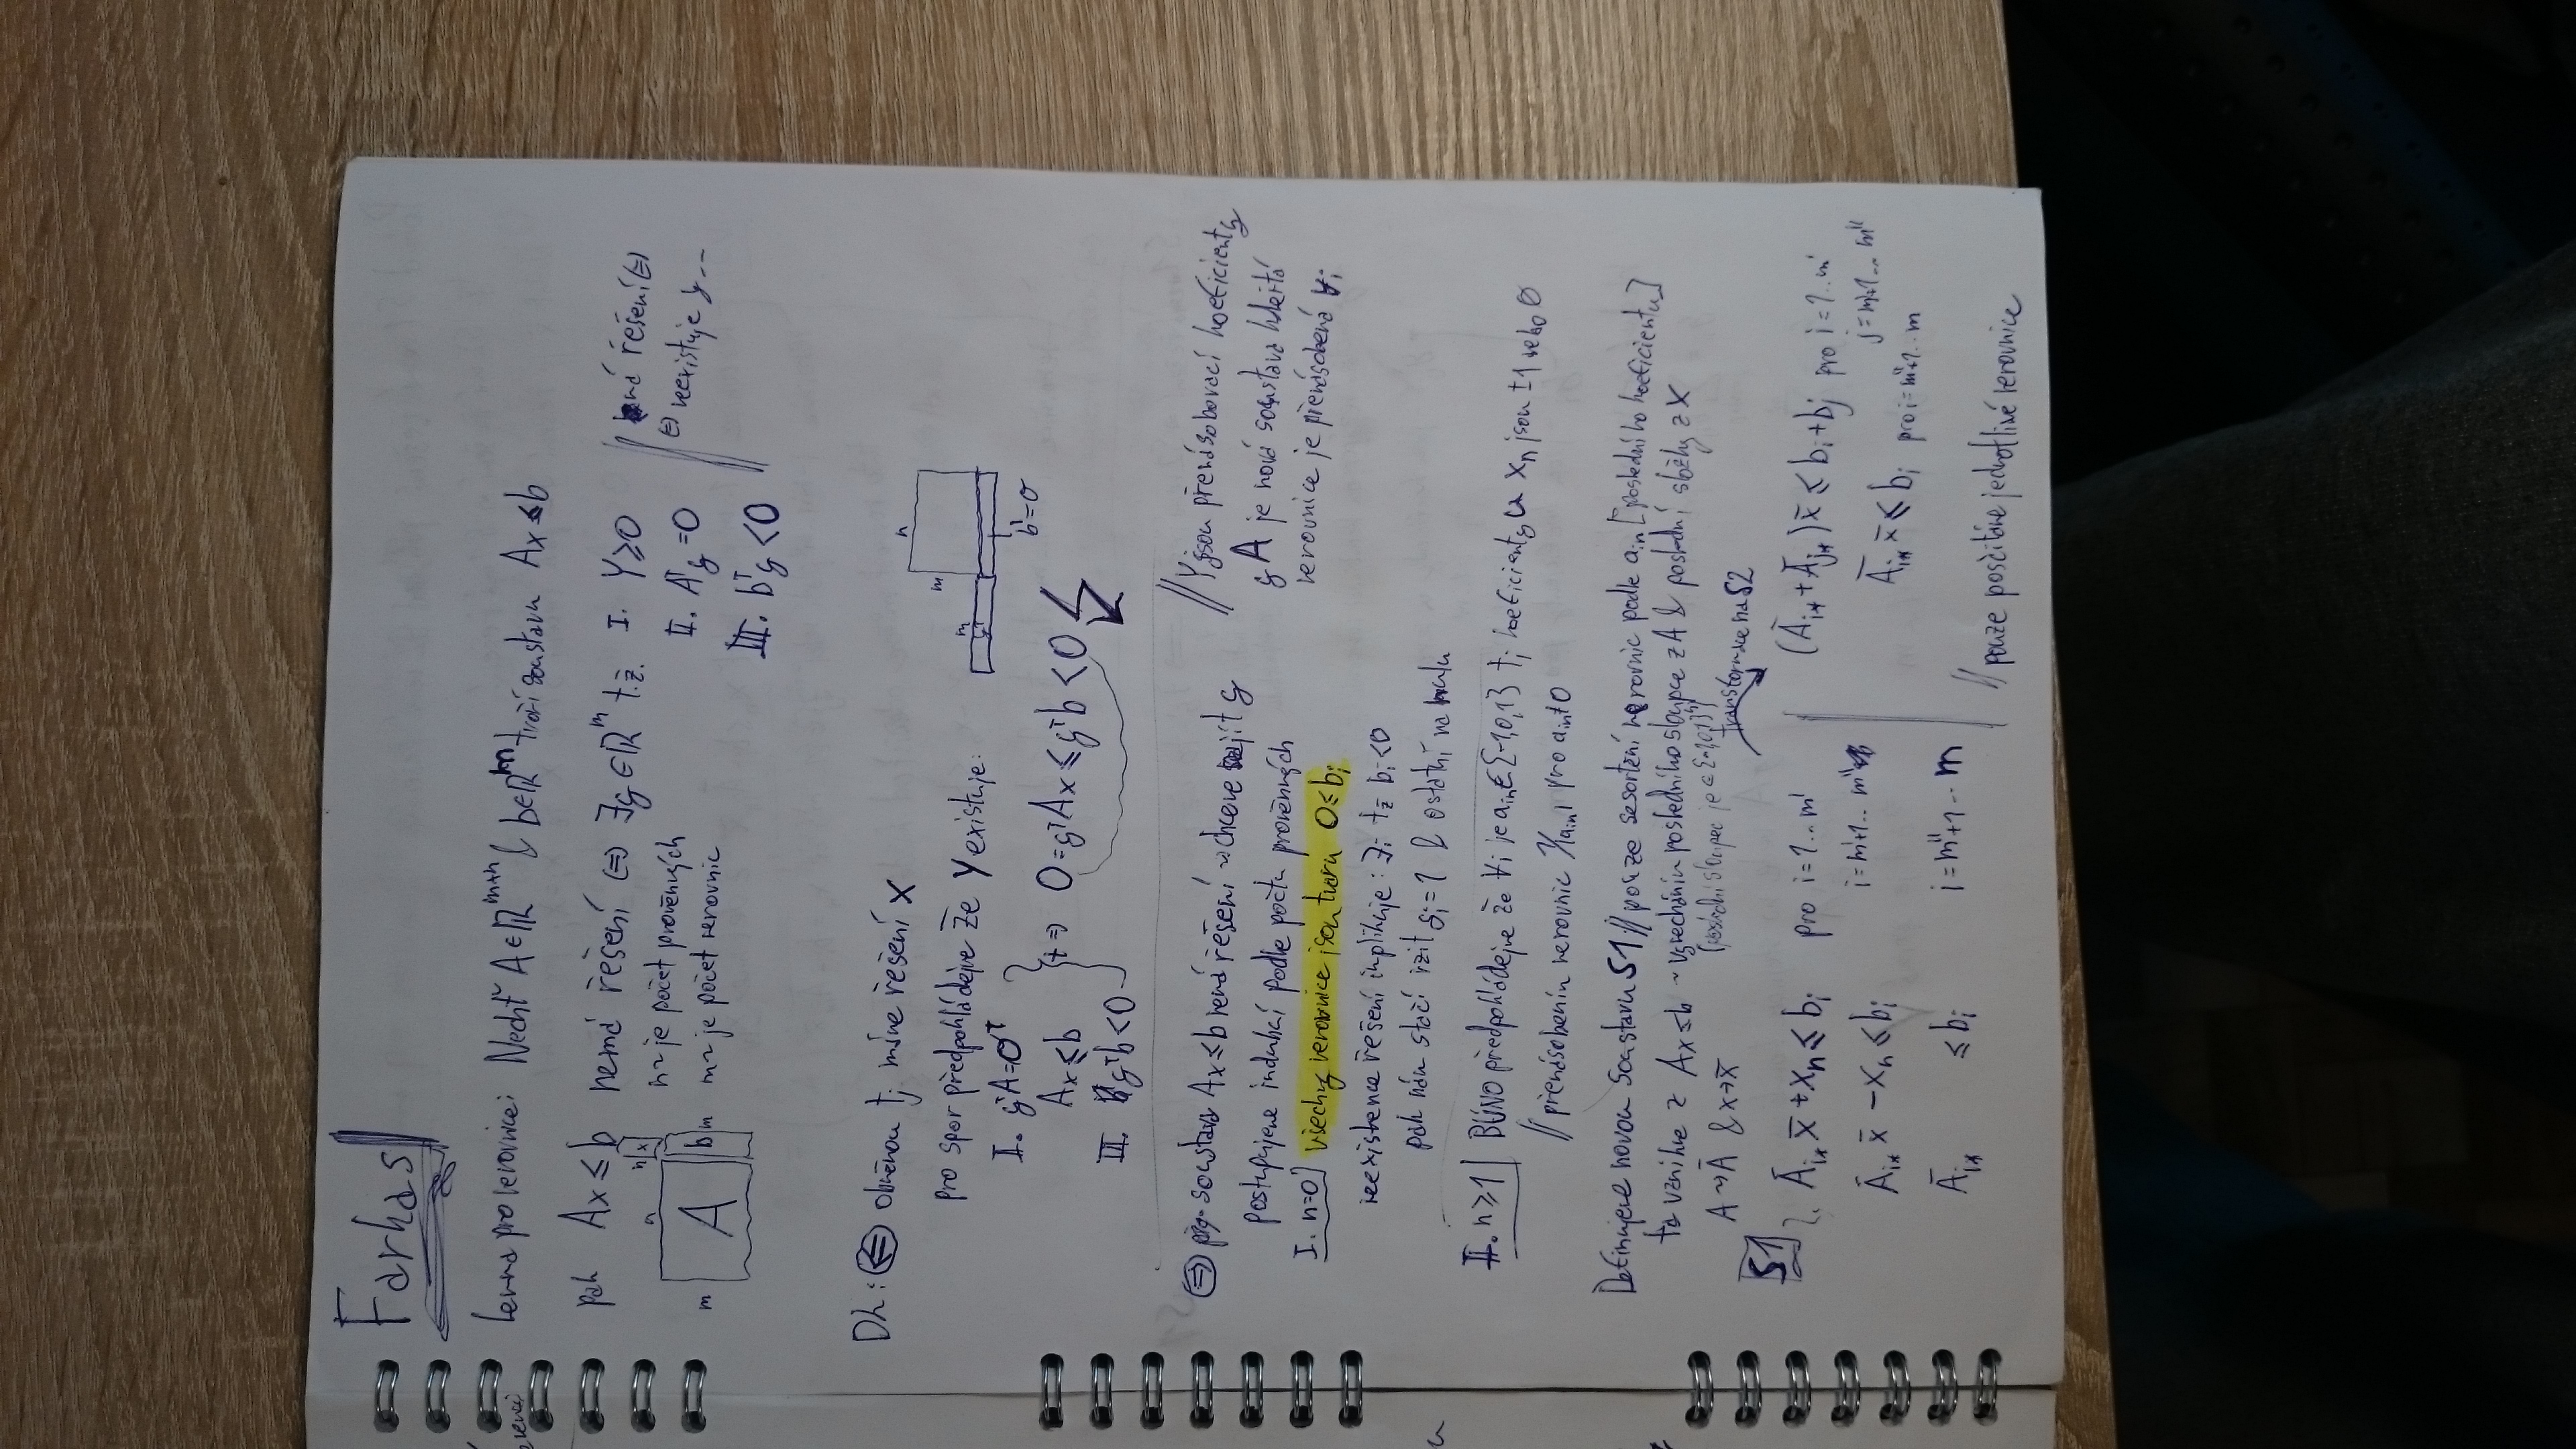 Farkas
Lemma pro nerovnice: Nechť A ∈ ℝ^{m×n} & b ∈ ℝ^m tvoří soustavu Ax ≤ b
pak Ax ≤ b nemá řešení ⇔ ∃y ∈ ℝ^m t.ž. I. y ≥ 0 // nemá řešení ⇔
n ~ je počet proměnných II. Aᵀy = 0 ⇔ neexistuje y...
m ~ je počet nerovnic III. bᵀy < 0
n n x
m A b m
Dk: ⇐ obměnou tj máme řešení x
pro spor předpokládejme že y existuje:
I. yᵀA = 0ᵀ
Ax ≤ b } t ⇒ 0 = yᵀAx ≤ yᵀb < 0
III. yᵀb < 0
m y m n
b' = 0
⇒ soustava Ax ≤ b nemá řešení ~ chceme najít y // y jsou přenásobovací koeficienty
Postupujeme indukcí podle počtu proměnných yA je nová soustava která
I. n=0 všechny nerovnice jsou tvaru 0 ≤ bᵢ nerovnice je přenásobená yᵢ
neexistence řešení implikuje: ∃i t.ž. bᵢ < 0
pak nám stačí vzít yᵢ = 1 & ostatní na nulu
II. n ≥ 1 BÚNO předpokládejme že ∀i je aᵢₙ ∈ {-1,0,1} tj koeficienty u xₙ jsou ±1 nebo 0
// přenásobením nerovnic 1/|aᵢₙ| pro aᵢₙ ≠ 0
Definujeme novou soustavu S1 // pouze sesortění nerovnic podle aᵢₙ [posledního koeficientu]
ta vznikne z Ax ≤ b ~ vynecháním posledního sloupce z A & poslední složky z x
A → Ā & x → x̄ (poslední sloupec je ∈ {-1,0,1}ᵐ)
transformace na S2
S1
Āᵢ* x̄ + xₙ ≤ bᵢ pro i = 1..m' (Āᵢ* + Āⱼ*) x̄ ≤ bᵢ + bⱼ pro i = 1..m'
j = m'+1..m''
Āᵢ* x̄ − xₙ ≤ bᵢ i = m'+1..m'' Āᵢ* x̄ ≤ bᵢ pro i = m''+1..m
Āᵢ* ≤ bᵢ i = m''+1..m
// pouze posčítáme jednotlivé nerovnice